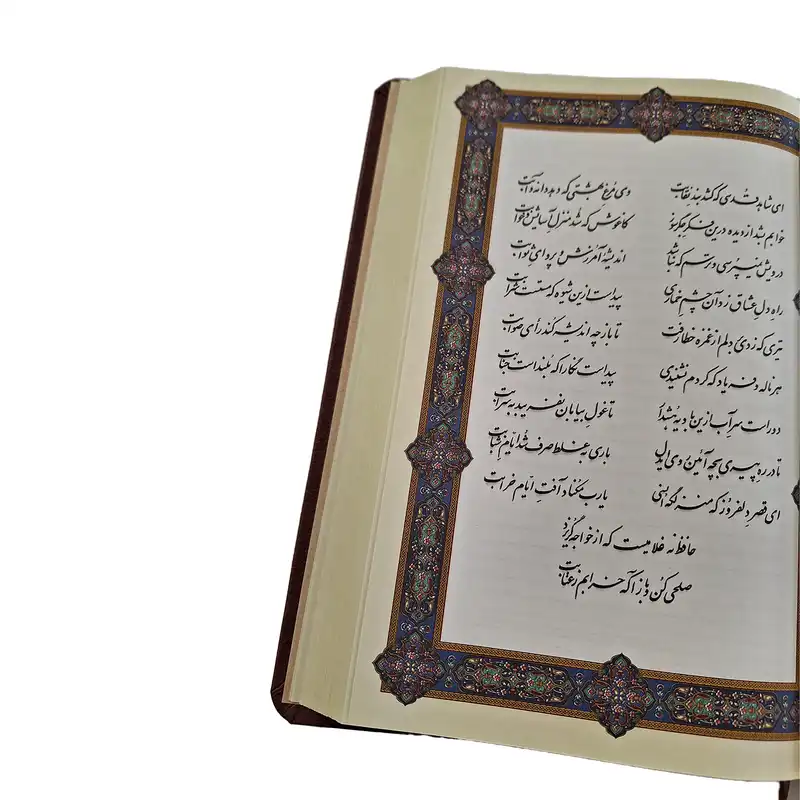 ای شاهد قدسی که کشد بند نقابت وی مرغ بهشتی که دهد دانه و آبت
خوابم بشد از دیده درین فکر جگرسوز کاغوش که شد منزل آسایش و خوابت
درویش نمیپرسی و ترسم که نباشد اندیشهٔ آمرزش و پروای ثوابت
راه دل عشاق زد آن چشم خماری پیداست ازین شیوه که مستست شرابت
تیری که زدی بر دلم از غمزه خطا رفت تا باز چه اندیشه کند رأی صوابت
هر ناله و فریاد که کردم نشنیدی پیداست نگارا که بلندست جنابت
دورست سر آب ازین بادیه هشدار تا غول بیابان نفریبد به سرابت
تا در ره پیری بچه آئین روی ایدل باری به غلط صرف شد ایام شبابت
ای قصر دلفروز که منزلگه انسی یارب مکناد آفت ایام خرابت
حافظ نه غلامیست که از خواجه گریزد
صلحی کن و بازآ که خرابم ز عتابت